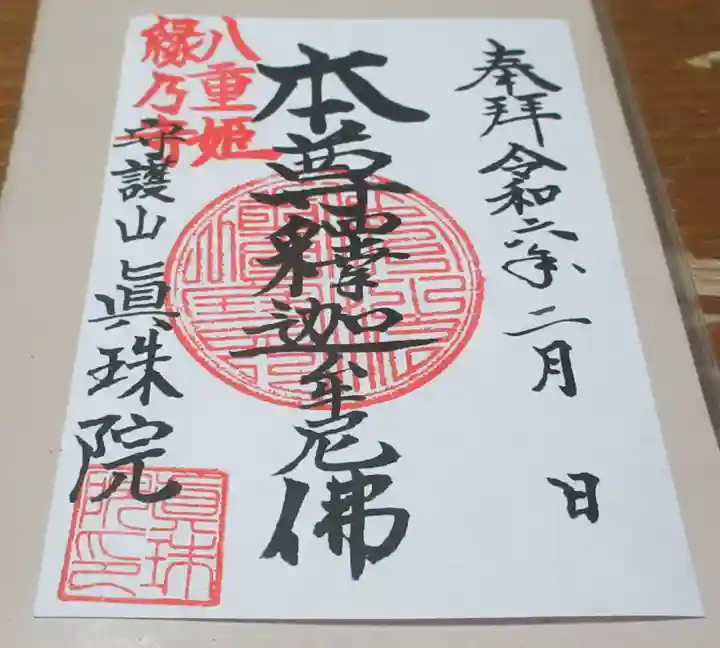 奉拝 令和六年 二月 日
本尊釋迦牟尼佛
八重姫
縁乃寺
守護山眞珠院
眞珠院印